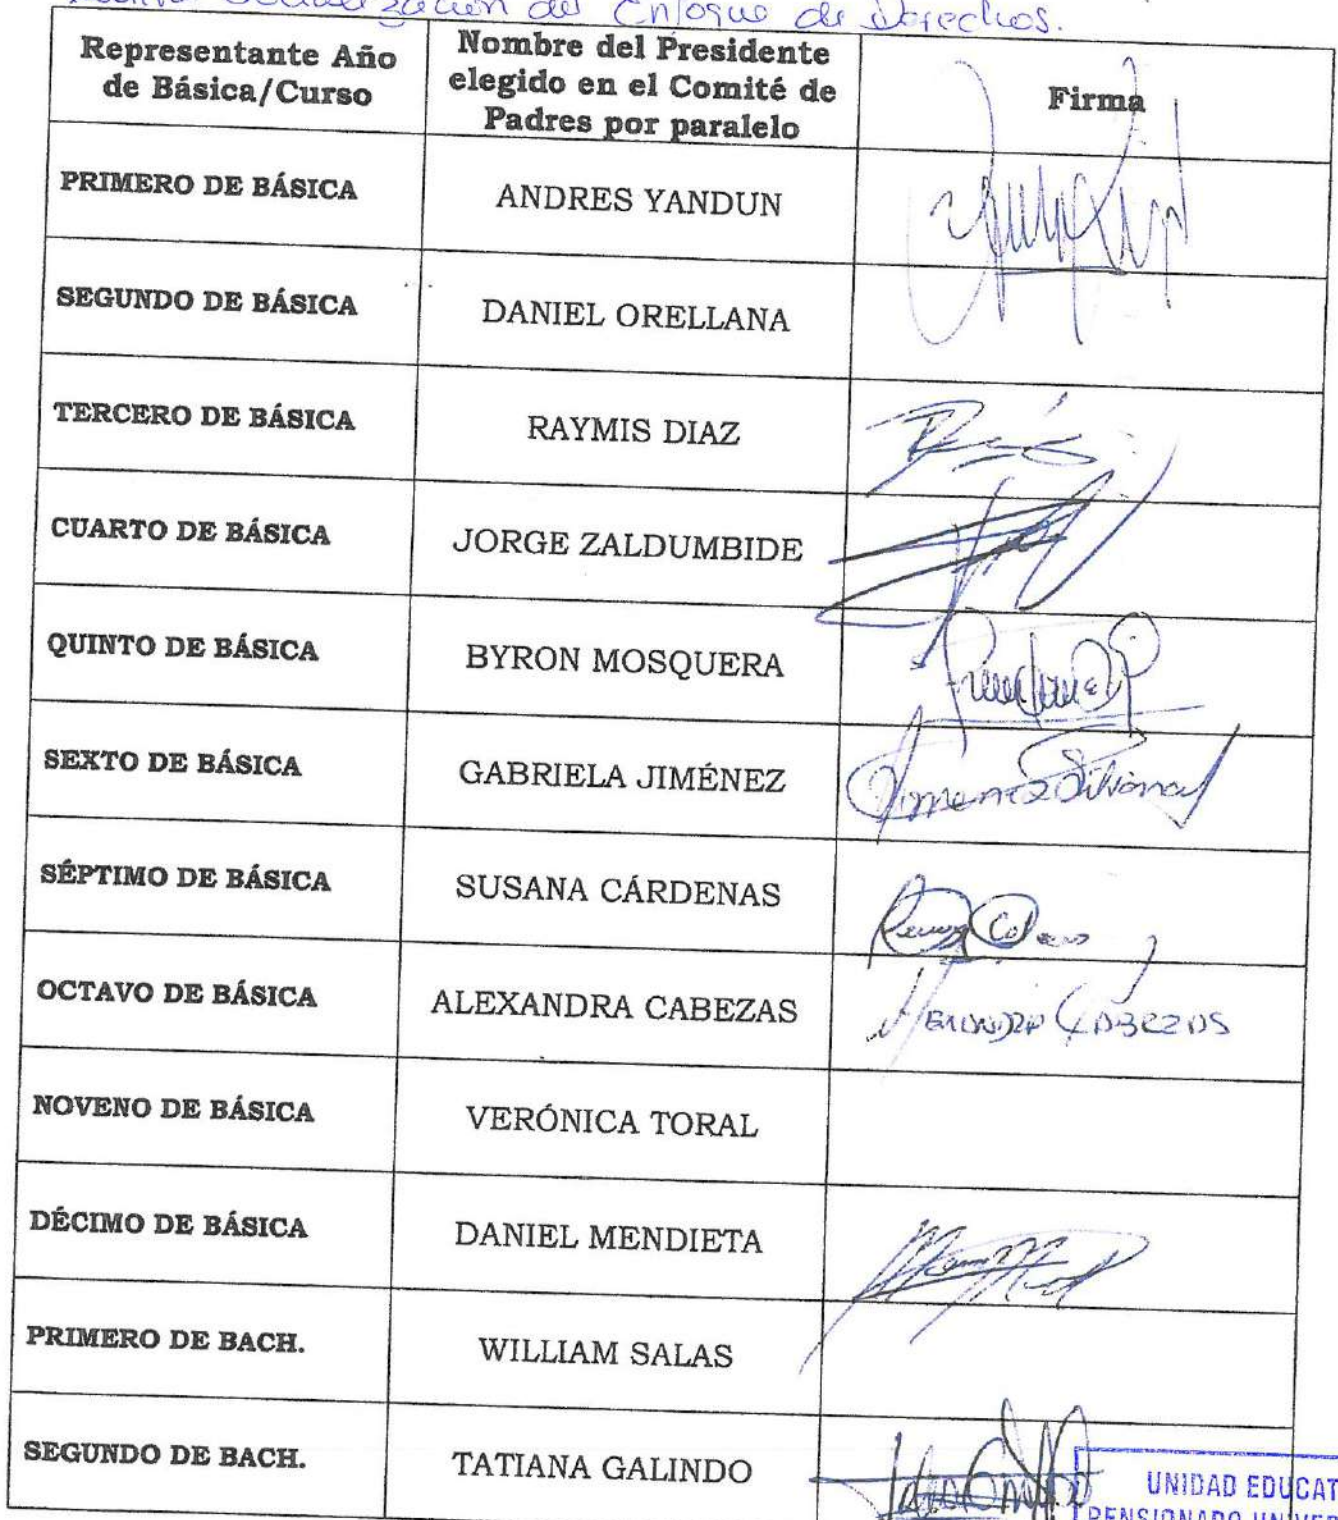 Socialización del Enfoque de Derechos.
Representante Año
de Básica/Curso
Nombre del Presidente
elegido en el Comité de
Padres por paralelo
Firma
PRIMERO DE BÁSICA
ANDRES YANDUN
SEGUNDO DE BÁSICA
DANIEL ORELLANA
TERCERO DE BÁSICA
RAYMIS DIAZ
CUARTO DE BÁSICA
JORGE ZALDUMBIDE
QUINTO DE BÁSICA
BYRON MOSQUERA
SEXTO DE BÁSICA
GABRIELA JIMÉNEZ
SÉPTIMO DE BÁSICA
SUSANA CÁRDENAS
OCTAVO DE BÁSICA
ALEXANDRA CABEZAS
NOVENO DE BÁSICA
VERÓNICA TORAL
DÉCIMO DE BÁSICA
DANIEL MENDIETA
PRIMERO DE BACH.
WILLIAM SALAS
SEGUNDO DE BACH.
TATIANA GALINDO
UNIDAD EDUCAT
PENSIONADO UNIVER